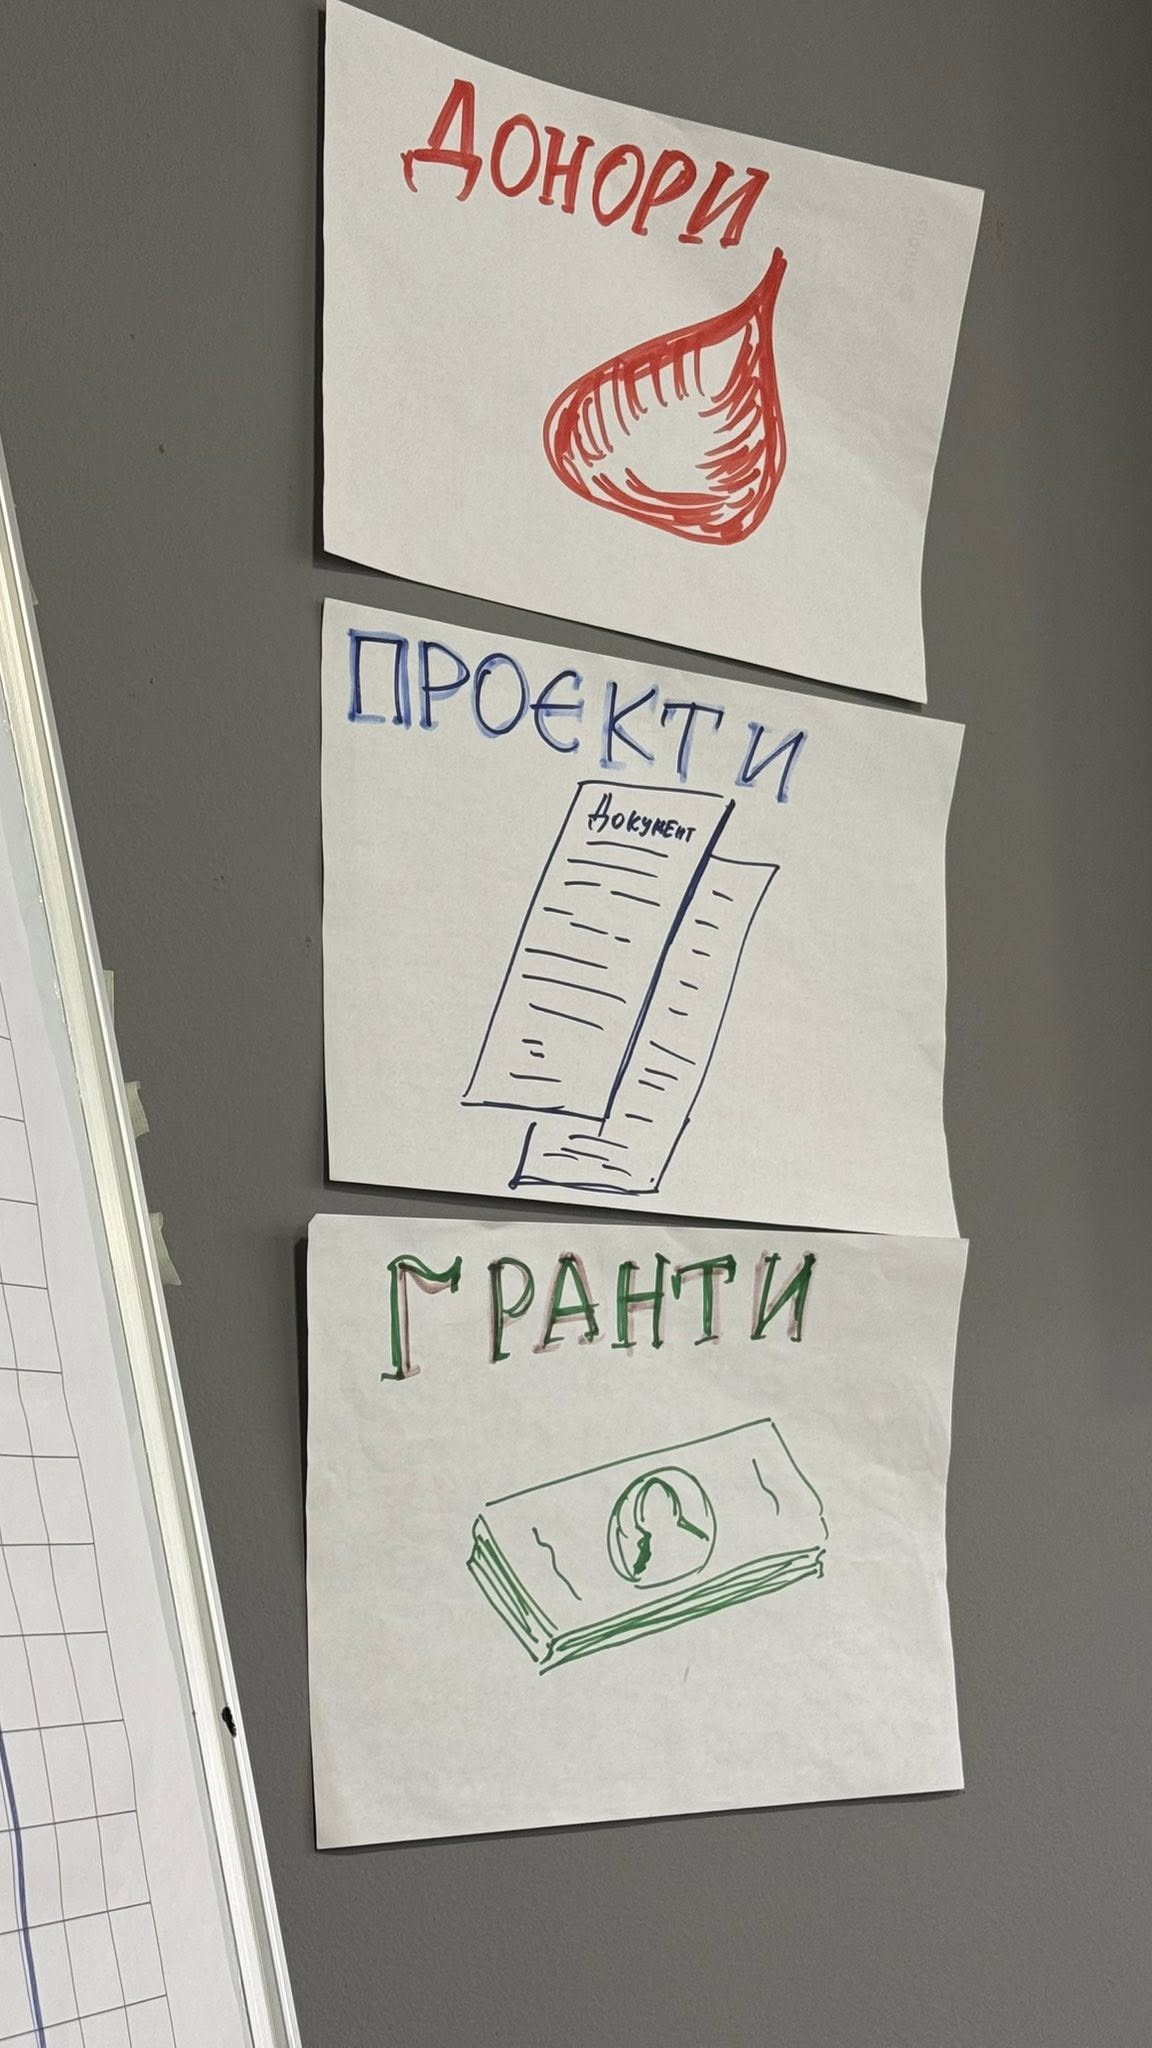 ДОНОРИ
ПРОЄКТИ
Документ
ГРАНТИ